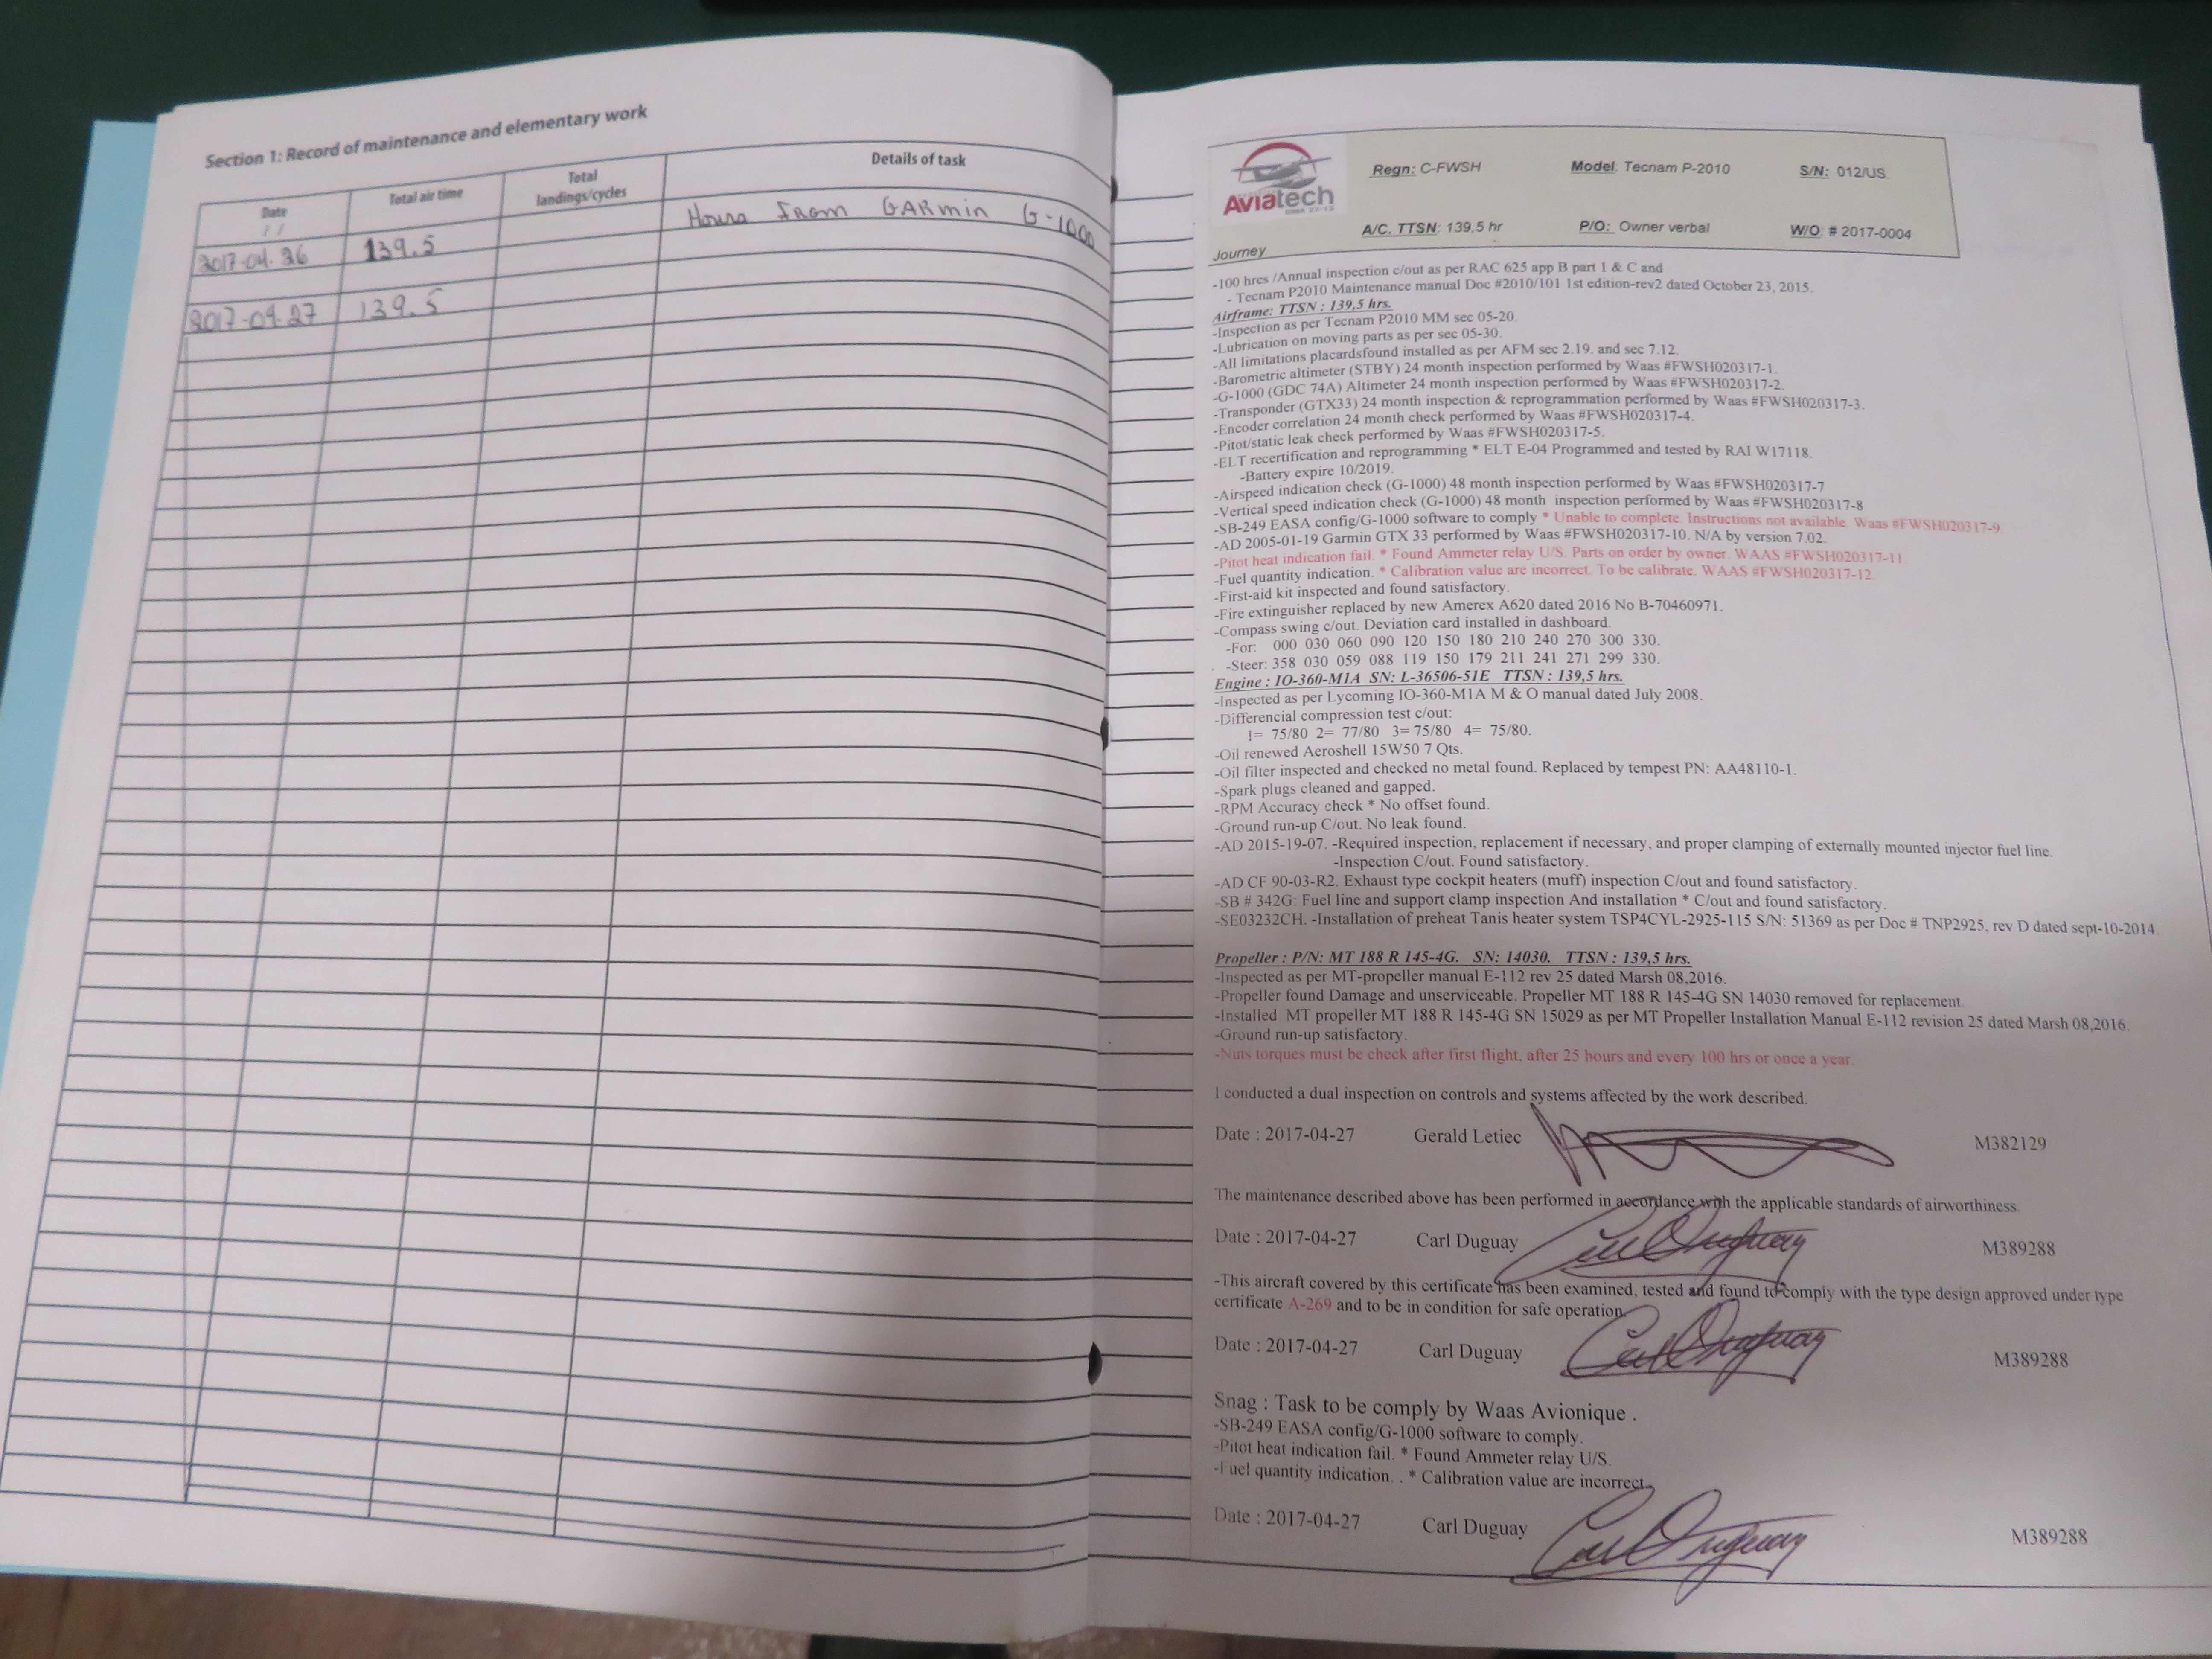 Section 1: Record of maintenance and elementary work
Date
/ /
Total air time
Total
landings/cycles
Details of task
2017-04-26 139.5 Hours From GARmin G-1000
2017-04-27 139.5
Aviatech
Regn: C-FWSH Model: Tecnam P-2010 S/N: 012/US.
A/C. TTSN: 139,5 hr P/O: Owner verbal W/O: # 2017-0004
Journey
-100 hres /Annual inspection c/out as per RAC 625 app B part 1 & C and
- Tecnam P2010 Maintenance manual Doc #2010/101 1st edition-rev2 dated October 23, 2015.
Airframe: TTSN : 139,5 hrs.
-Inspection as per Tecnam P2010 MM sec 05-20.
-Lubrication on moving parts as per sec 05-30.
-All limitations placardsfound installed as per AFM sec 2.19. and sec 7.12.
-Barometric altimeter (STBY) 24 month inspection performed by Waas #FWSH020317-1.
-G-1000 (GDC 74A) Altimeter 24 month inspection performed by Waas #FWSH020317-2.
-Transponder (GTX33) 24 month inspection & reprogrammation performed by Waas #FWSH020317-3.
-Encoder correlation 24 month check performed by Waas #FWSH020317-4.
-Pitot/static leak check performed by Waas #FWSH020317-5.
-ELT recertification and reprogramming * ELT E-04 Programmed and tested by RAI W17118.
-Battery expire 10/2019.
-Airspeed indication check (G-1000) 48 month inspection performed by Waas #FWSH020317-7
-Vertical speed indication check (G-1000) 48 month inspection performed by Waas #FWSH020317-8
-SB-249 EASA config/G-1000 software to comply * Unable to complete. Instructions not available. Waas #FWSH020317-9.
-AD 2005-01-19 Garmin GTX 33 performed by Waas #FWSH020317-10. N/A by version 7.02.
-Pitot heat indication fail. * Found Ammeter relay U/S. Parts on order by owner. WAAS #FWSH020317-11.
-Fuel quantity indication. * Calibration value are incorrect. To be calibrate. WAAS #FWSH020317-12.
-First-aid kit inspected and found satisfactory.
-Fire extinguisher replaced by new Amerex A620 dated 2016 No B-70460971.
-Compass swing c/out. Deviation card installed in dashboard.
-For: 000 030 060 090 120 150 180 210 240 270 300 330.
-Steer: 358 030 059 088 119 150 179 211 241 271 299 330.
Engine : IO-360-M1A SN: L-36506-51E TTSN : 139,5 hrs.
-Inspected as per Lycoming IO-360-M1A M & O manual dated July 2008.
-Differencial compression test c/out:
1= 75/80 2= 77/80 3= 75/80 4= 75/80.
-Oil renewed Aeroshell 15W50 7 Qts.
-Oil filter inspected and checked no metal found. Replaced by tempest PN: AA48110-1.
-Spark plugs cleaned and gapped.
-RPM Accuracy check * No offset found.
-Ground run-up C/out. No leak found.
-AD 2015-19-07. -Required inspection, replacement if necessary, and proper clamping of externally mounted injector fuel line.
-Inspection C/out. Found satisfactory.
-AD CF 90-03-R2. Exhaust type cockpit heaters (muff) inspection C/out and found satisfactory.
-SB # 342G: Fuel line and support clamp inspection And installation * C/out and found satisfactory.
-SE03232CH. -Installation of preheat Tanis heater system TSP4CYL-2925-115 S/N: 51369 as per Doc # TNP2925, rev D dated sept-10-2014.
Propeller : P/N: MT 188 R 145-4G. SN: 14030. TTSN : 139,5 hrs.
-Inspected as per MT-propeller manual E-112 rev 25 dated Marsh 08,2016.
-Propeller found Damage and unserviceable. Propeller MT 188 R 145-4G SN 14030 removed for replacement.
-Installed MT propeller MT 188 R 145-4G SN 15029 as per MT Propeller Installation Manual E-112 revision 25 dated Marsh 08,2016.
-Ground run-up satisfactory.
-Nuts torques must be check after first flight, after 25 hours and every 100 hrs or once a year.
I conducted a dual inspection on controls and systems affected by the work described.
Date : 2017-04-27 Gerald Letiec M382129
The maintenance described above has been performed in accordance with the applicable standards of airworthiness.
Date : 2017-04-27 Carl Duguay Carl Duguay M389288
-This aircraft covered by this certificate has been examined, tested and found to comply with the type design approved under type
certificate A-269 and to be in condition for safe operation.
Date : 2017-04-27 Carl Duguay Carl Duguay M389288
Snag : Task to be comply by Waas Avionique .
-SB-249 EASA config/G-1000 software to comply.
-Pitot heat indication fail. * Found Ammeter relay U/S.
-Fuel quantity indication. . * Calibration value are incorrect.
Date : 2017-04-27 Carl Duguay Carl Duguay M389288